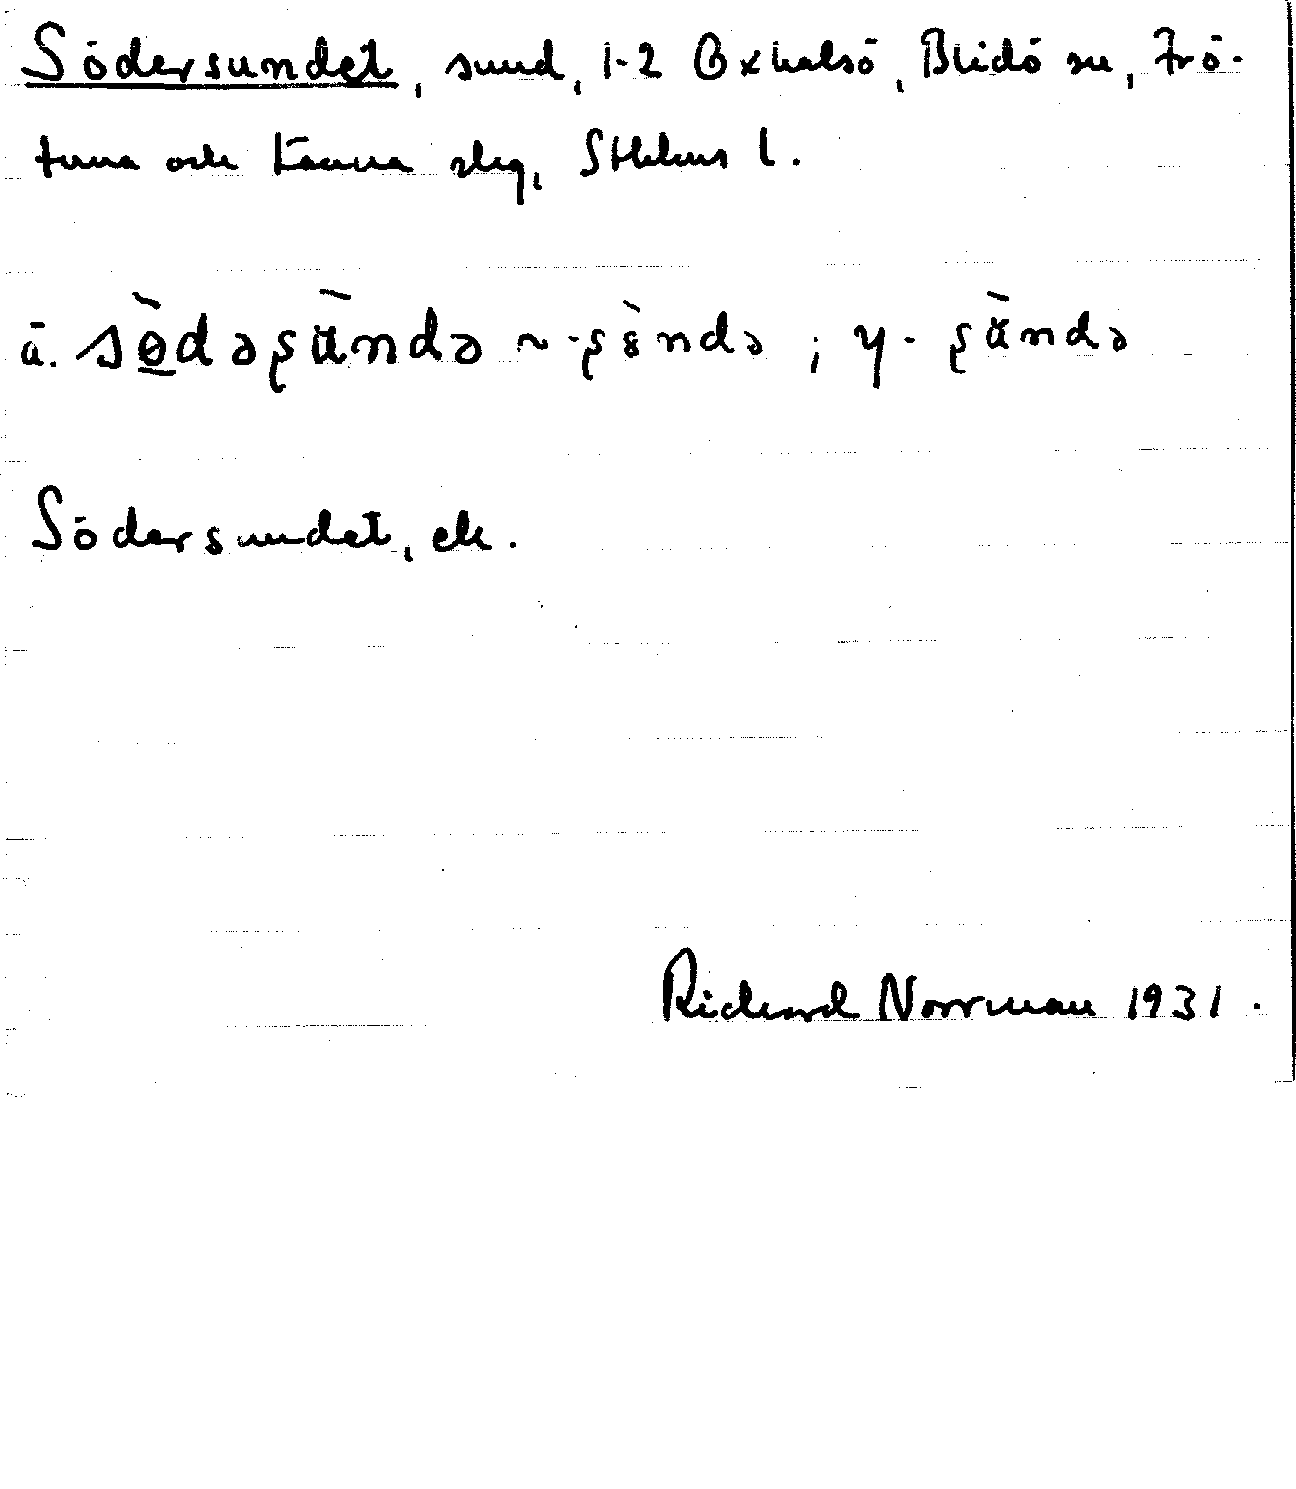 Södersundet, sund, 1-2 Oxhalsö, Blidö sn, Frö-
tuna och Länna slg, Sthlms l.
ä. sɵ̀dəʂɯ̀ndə ~ -ʂɵ̀ndə ; y - ʂɯ̀ndə
Södersundet, ek.
Richard Norrman 1931.